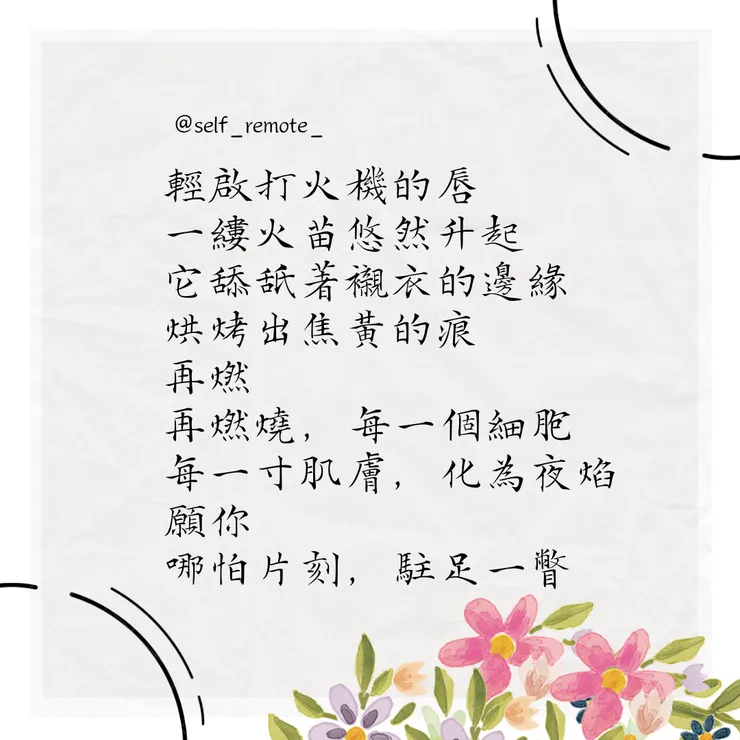 @self_remote_
輕啟打火機的唇
一縷火苗悠然升起
它舔舐著襯衣的邊緣
烘烤出焦黃的痕
再燃
再燃燒，每一個細胞
每一寸肌膚，化為夜焰
願你
哪怕片刻，駐足一瞥